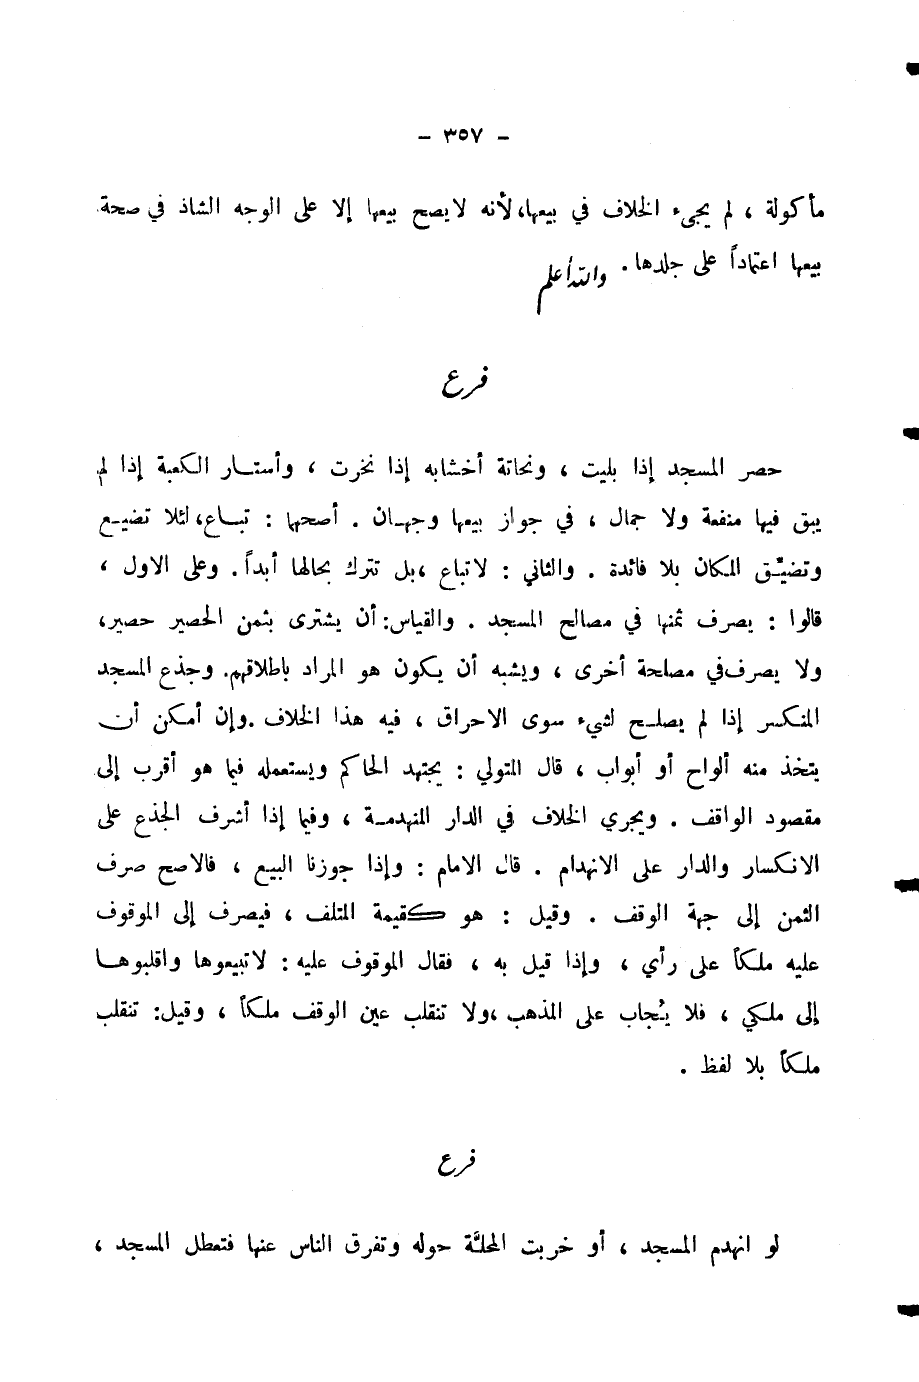 - ٣٥٧ -
مأكولة ، لم يجىء الخلاف في بيعها،لأنه لايصح بيعها إلا على الوجه الشاذ في صحة
بيعها اعتماداً على جلدها . والله أعلم
فرع
حصر المسجد إذا بليت ، ونحاتة أخشابه إذا نخرت ، وأستار الكعبة إذا لم
يبق فيها منفعة ولا جمال ، في جواز بيعها وجهان . أصحها : تباع،لئلا تضيع
وتضيّق المكان بلا فائدة . والثاني : لاتباع ،بل تترك بحالها أبداً . وعلى الاول ،
قالوا : يصرف ثمنها في مصالح المسجد . والقياس:أن يشترى بثمن الحصير حصير،
ولا يصرف في مصلحة أخرى ، ويشبه أن يكون هو المراد باطلاقهم. وجذع المسجد
المنكسر إذا لم يصلح لشيء سوى الاحراق ، فيه هذا الخلاف .وإن أمكن أن
يتخذ منه ألواح أو أبواب ، قال المتولي : يجتهد الحاكم ويستعمله فيما هو أقرب إلى
مقصود الواقف . ويجري الخلاف في الدار المنهدمة ، وفيما إذا أشرف الجذع على
الانكسار والدار على الانهدام . قال الامام : وإذا جوزنا البيع ، فالاصح صرف
الثمن إلى جهة الوقف . وقيل : هو كقيمة المتلف ، فيصرف إلى الموقوف
عليه ملكاً على رأي ، وإذا قيل به ، فقال الموقوف عليه : لاتبيعوها واقلبوها
إلى ملكي ، فلا يُجاب على المذهب ،ولا تنقلب عين الوقف ملكاً ، وقيل: تنقلب
ملكاً بلا لفظ .
فرع
لو انهدم المسجد ، أو خربت المحلَّة حوله وتفرق الناس عنها فتعطل المسجد ،